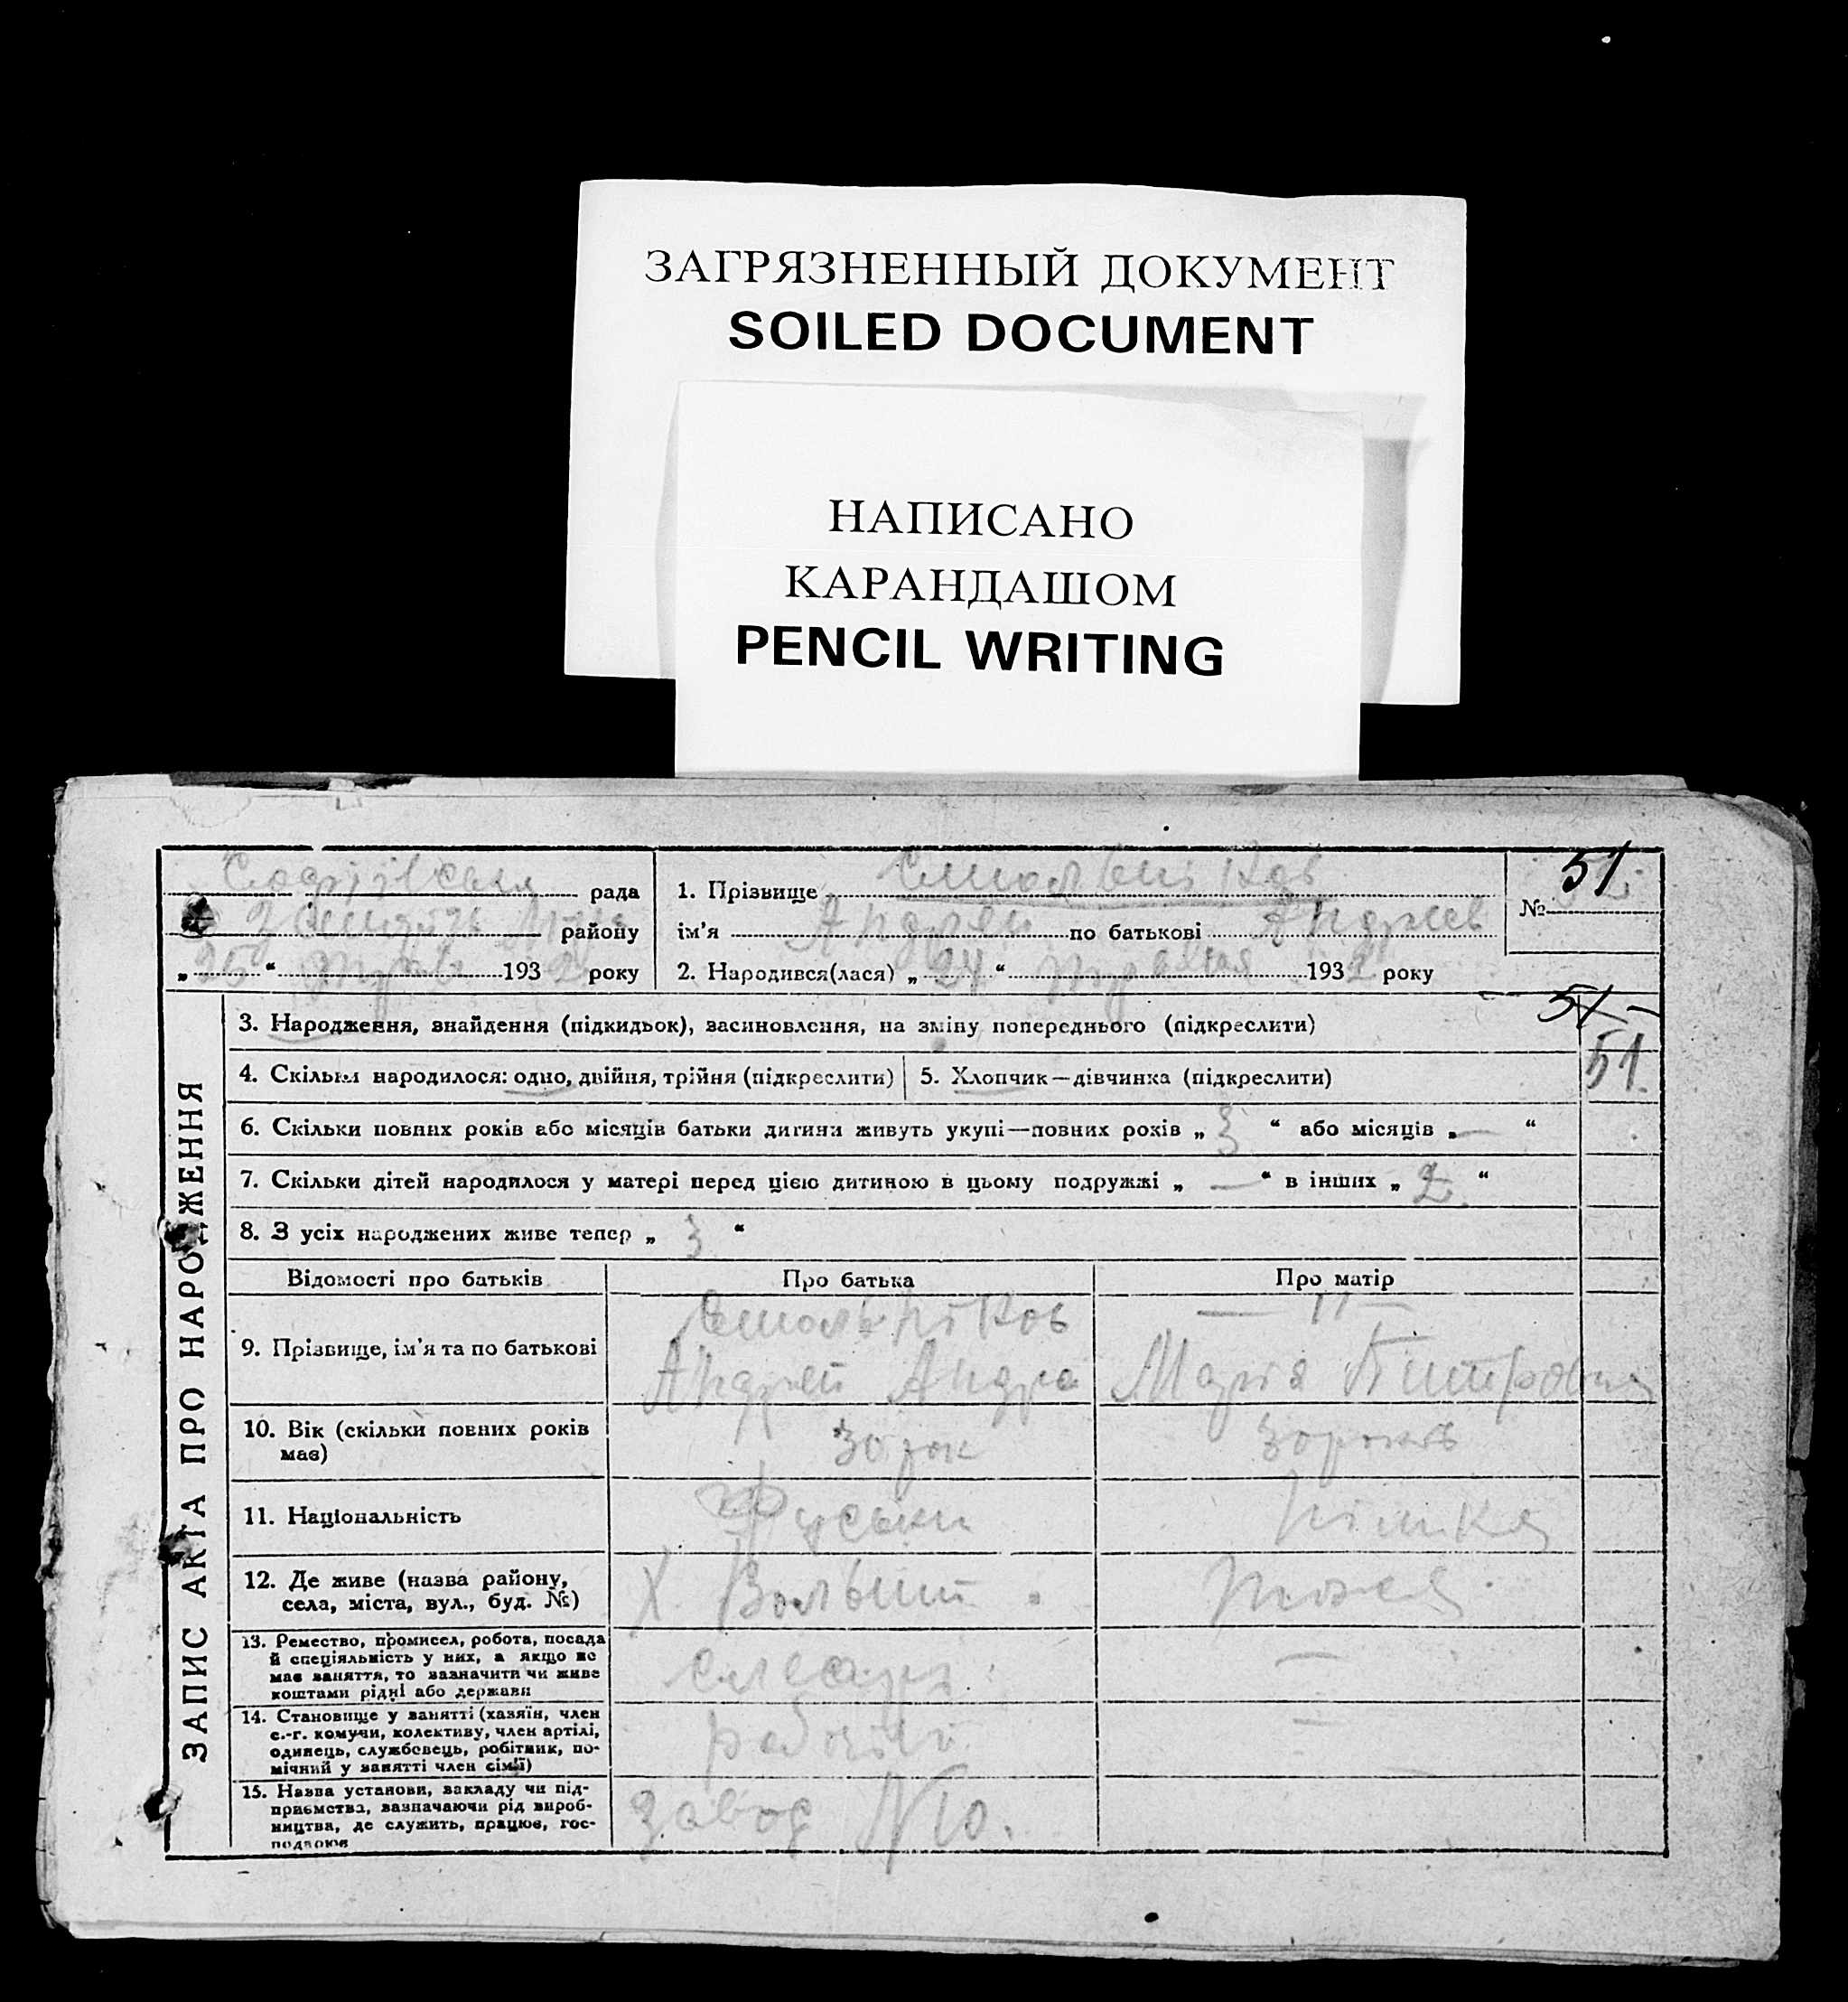 ЗАГРЯЗНЕННЫЙ ДОКУМЕНТ
SOILED DOCUMENT
НАПИСАНО
КАРАНДАШОМ
PENCIL WRITING
ЗАПИС АКТА ПРО НАРОДЖЕННЯ
рада
району
„25“ 1932 року
1. Прізвище
ім'я Андрей по батькові Андреев
2. Народився(лася) „24“ травня 1932 року
№ 51
3. Народження, знайдення (підкидьок), засиновлення, на зміну попереднього (підкреслити)
51
4. Скільки народилося: одно, двійня, трійня (підкреслити)
5. Хлопчик—дівчинка (підкреслити)
51
6. Скільки повних років або місяців батьки дитини живуть укупі—повних років „3“ або місяців „—“
7. Скільки дітей народилося у матері перед цією дитиною в цьому подружжі „—“ в інших „2“
8. З усіх народжених живе тепер „3“
Відомості про батьків
Про батька
Про матір
9. Прізвище, ім'я та по батькові
Смольніков
Андрей Андре
— 11 —
Марія
10. Вік (скільки повних років має)
30 рок
30 років
11. Національність
руськи
німка
12. Де живе (назва району, села, міста, вул., буд. №)
Х.
тоже
13. Ремество, промисел, робота, посада й спеціяльність у них, а якщо не має заняття, то зазначити чи живе коштами рідні або держави
слесарь
—
14. Становище у занятті (хазяїн, член с.-г. комуни, колективу, член артілі, одинець, службовець, робітник, помічний у занятті член сім'ї)
рабочий
—
15. Назва установи, закладу чи підприємства, зазначаючи рід виробництва, де служить, працює, господарює
завод N 10.